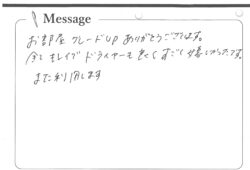 Message
お部屋 グレードUP ありがとうございます。
ドライヤーも良くて すごく嬉しかったです。
また利用します